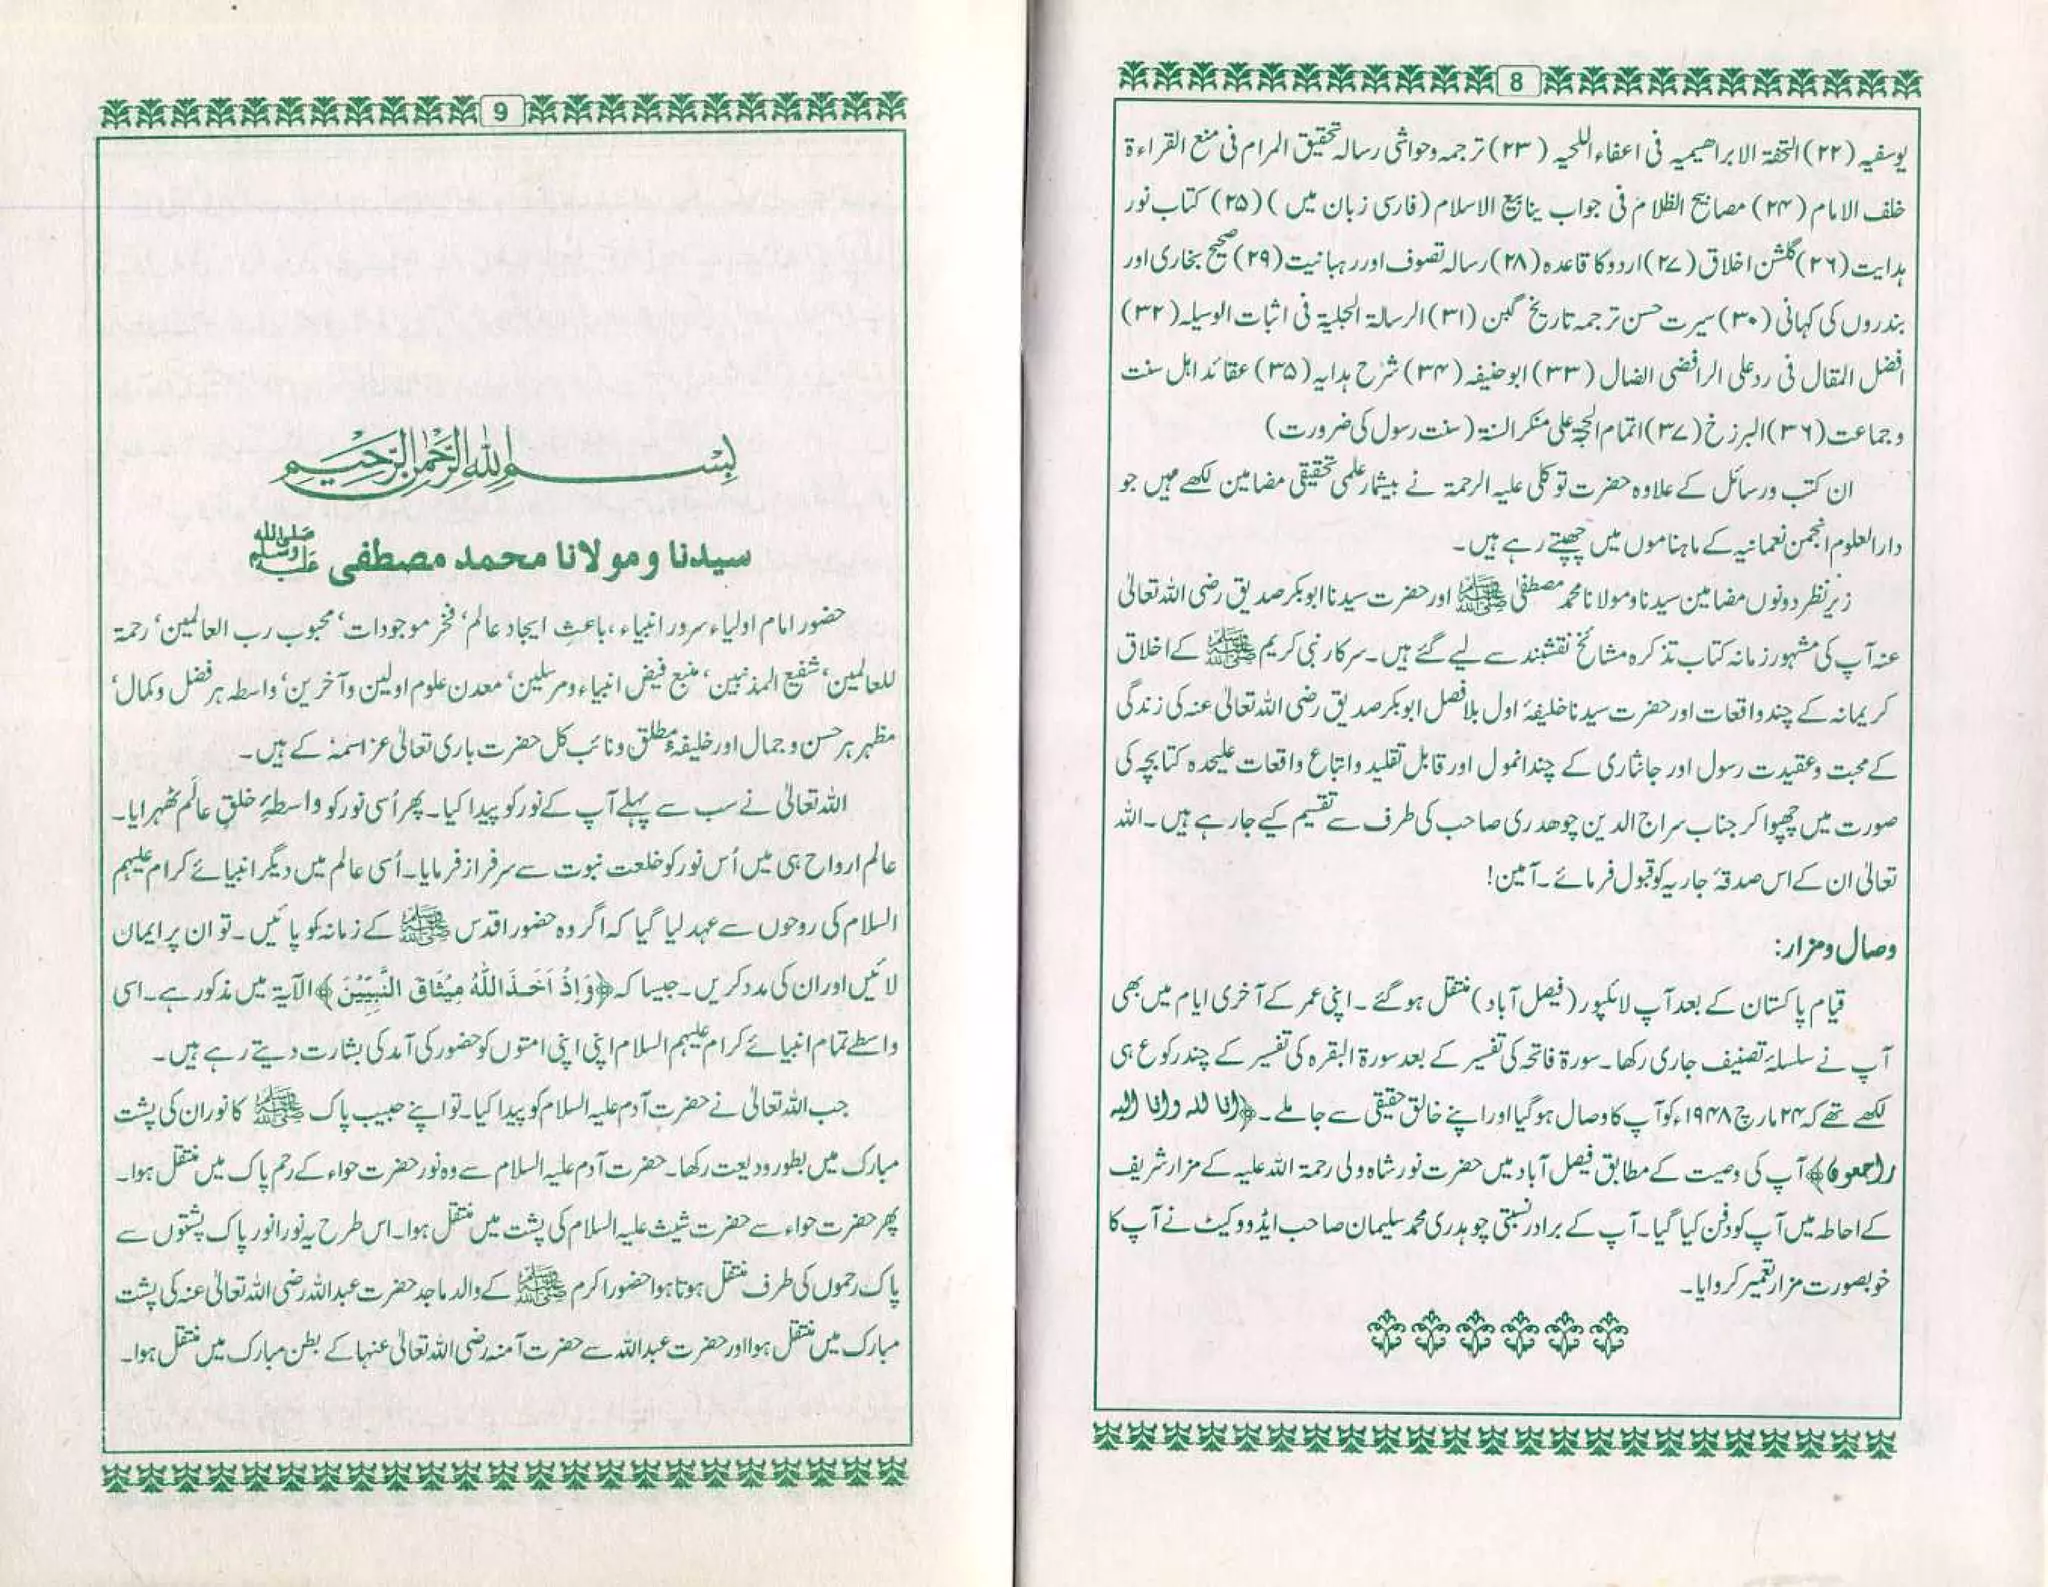 8
یوسفیہ (۲۲) التحفۃ الابراھیمیہ فی اعفاء اللحیہ (۲۳) ترجمہ وحواشی رسالہ تحقیق المرام فی منع القراءۃ
خلف الامام (۲۴) مصابیح الظلام فی جواب ینابیع الاسلام (فارسی زبان میں) (۲۵) کتاب نور
ہدایت (۲۶) گلشن اخلاق (۲۷) اردو کا قاعدہ (۲۸) رسالہ تصوف اور رہبانیت (۲۹) صحیح بخاری اور
بندروں کی کہانی (۳۰) سیرت حسن ترجمہ تاریخ گبن (۳۱) الرسالۃ الجلیۃ فی اثبات الوسیلہ (۳۲)
افضل المقال فی رد علی الرافضی الضال (۳۳) ابو حنیفہ (۳۴) شرح ہدایہ (۳۵) عقائد اہل سنت
و جماعت (۳۶) البرزخ (۳۷) اتمام الحجۃ علی منکر السنۃ (سنت رسول کی ضرورت)
ان کتب ورسائل کے علاوہ حضرت توکلی علیہ الرحمۃ نے بیشمار علمی تحقیقی مضامین لکھے ہیں جو
دارالعلوم انجمن نعمانیہ کے ماہناموں میں چھپتے رہے ہیں۔
زیر نظر دونوں مضامین سیدنا ومولانا محمد مصطفیٰ ﷺ اور حضرت سیدنا ابوبکر صدیق رضی اللہ تعالیٰ
عنہ آپ کی مشہور زمانہ کتاب تذکرہ مشائخ نقشبند سے لیے گئے ہیں۔ سرکار نبی کریم ﷺ کے اخلاق
کریمانہ کے چند واقعات اور حضرت سیدنا خلیفۂ اول بلا فصل ابوبکر صدیق رضی اللہ تعالیٰ عنہ کی زندگی
کے محبت وعقیدت رسول اور جانثاری کے چند انمول اور قابل تقلید واتباع واقعات علیحدہ کتابچہ کی
صورت میں چھپوا کر جناب سراج الدین چوھدری صاحب کی طرف سے تقسیم کیے جا رہے ہیں۔ اللہ
تعالیٰ ان کے اس صدقۂ جاریہ کو قبول فرمائے۔ آمین!
وصال ومزار:
قیام پاکستان کے بعد آپ لائلپور (فیصل آباد) منتقل ہو گئے۔ اپنی عمر کے آخری ایام میں بھی
آپ نے سلسلۂ تصنیف جاری رکھا۔ سورۃ فاتحہ کی تفسیر کے بعد سورۃ البقرہ کی تفسیر کے چند رکوع ہی
لکھے تھے کہ ۲۴ مارچ ۱۹۴۸ء کو آپ کا وصال ہو گیا اور اپنے خالق حقیقی سے جا ملے۔ ﴿انا للہ وانا الیہ
راجعون﴾ آپ کی وصیت کے مطابق فیصل آباد میں حضرت نور شاہ ولی رحمۃ اللہ علیہ کے مزار شریف
کے احاطہ میں آپ کو دفن کیا گیا۔ آپ کے برادر نسبتی چوہدری محمد سلیمان صاحب ایڈووکیٹ نے آپ کا
خوبصورت مزار تعمیر کروایا۔
9
بسم اللہ الرحمٰن الرحیم
سیدنا و مولانا محمد مصطفی ﷺ
حضور امام اولیاء سرور انبیاء، باعثِ ایجاد عالم، فخر موجودات، محبوب رب العالمین، رحمۃ
للعالمین، شفیع المذنبین، منبع فیض انبیاء ومرسلین، معدن علوم اولین وآخرین، واسطہ ہر فضل وکمال،
مظہر ہر حسن و جمال اور خلیفۂ مطلق ونائب کل حضرت باری تعالیٰ عز اسمہٗ کے ہیں۔
اللہ تعالیٰ نے سب سے پہلے آپ کے نور کو پیدا کیا۔ پھر اُسی نور کو واسطۂ خلقِ عالَم ٹھہرایا۔
عالم ارواح ہی میں اُس نور کو خلعت نبوت سے سرفراز فرمایا۔ اُسی عالم میں دیگر انبیائے کرام علیہم
السلام کی روحوں سے عہد لیا گیا کہ اگر وہ حضور اقدس ﷺ کے زمانہ کو پائیں۔ تو ان پر ایمان
لائیں اور ان کی مدد کریں۔ جیسا کہ ﴿وَاِذْ اَخَذَ اللّٰہُ مِیْثَاقَ النَّبِیّٖنَ﴾ الآیۃ میں مذکور ہے۔ اسی
واسطے تمام انبیائے کرام علیہم السلام اپنی اپنی امتوں کو حضور کی آمد کی بشارت دیتے رہے ہیں۔
جب اللہ تعالیٰ نے حضرت آدم علیہ السلام کو پیدا کیا۔ تو اپنے حبیب پاک ﷺ کا نور ان کی پشت
مبارک میں بطور ودیعت رکھا۔ حضرت آدم علیہ السلام سے وہ نور حضرت حواء کے رحم پاک میں منتقل ہوا۔
پھر حضرت حواء سے حضرت شیث علیہ السلام کی پشت میں منتقل ہوا۔ اس طرح یہ نور انور پاک پشتوں سے
پاک رحموں کی طرف منتقل ہوتا ہوا حضور اکرم ﷺ کے والد ماجد حضرت عبداللہ رضی اللہ تعالیٰ عنہ کی پشت
مبارک میں منتقل ہوا اور حضرت عبداللہ سے حضرت آمنہ رضی اللہ تعالیٰ عنہا کے بطن مبارک میں منتقل ہوا۔